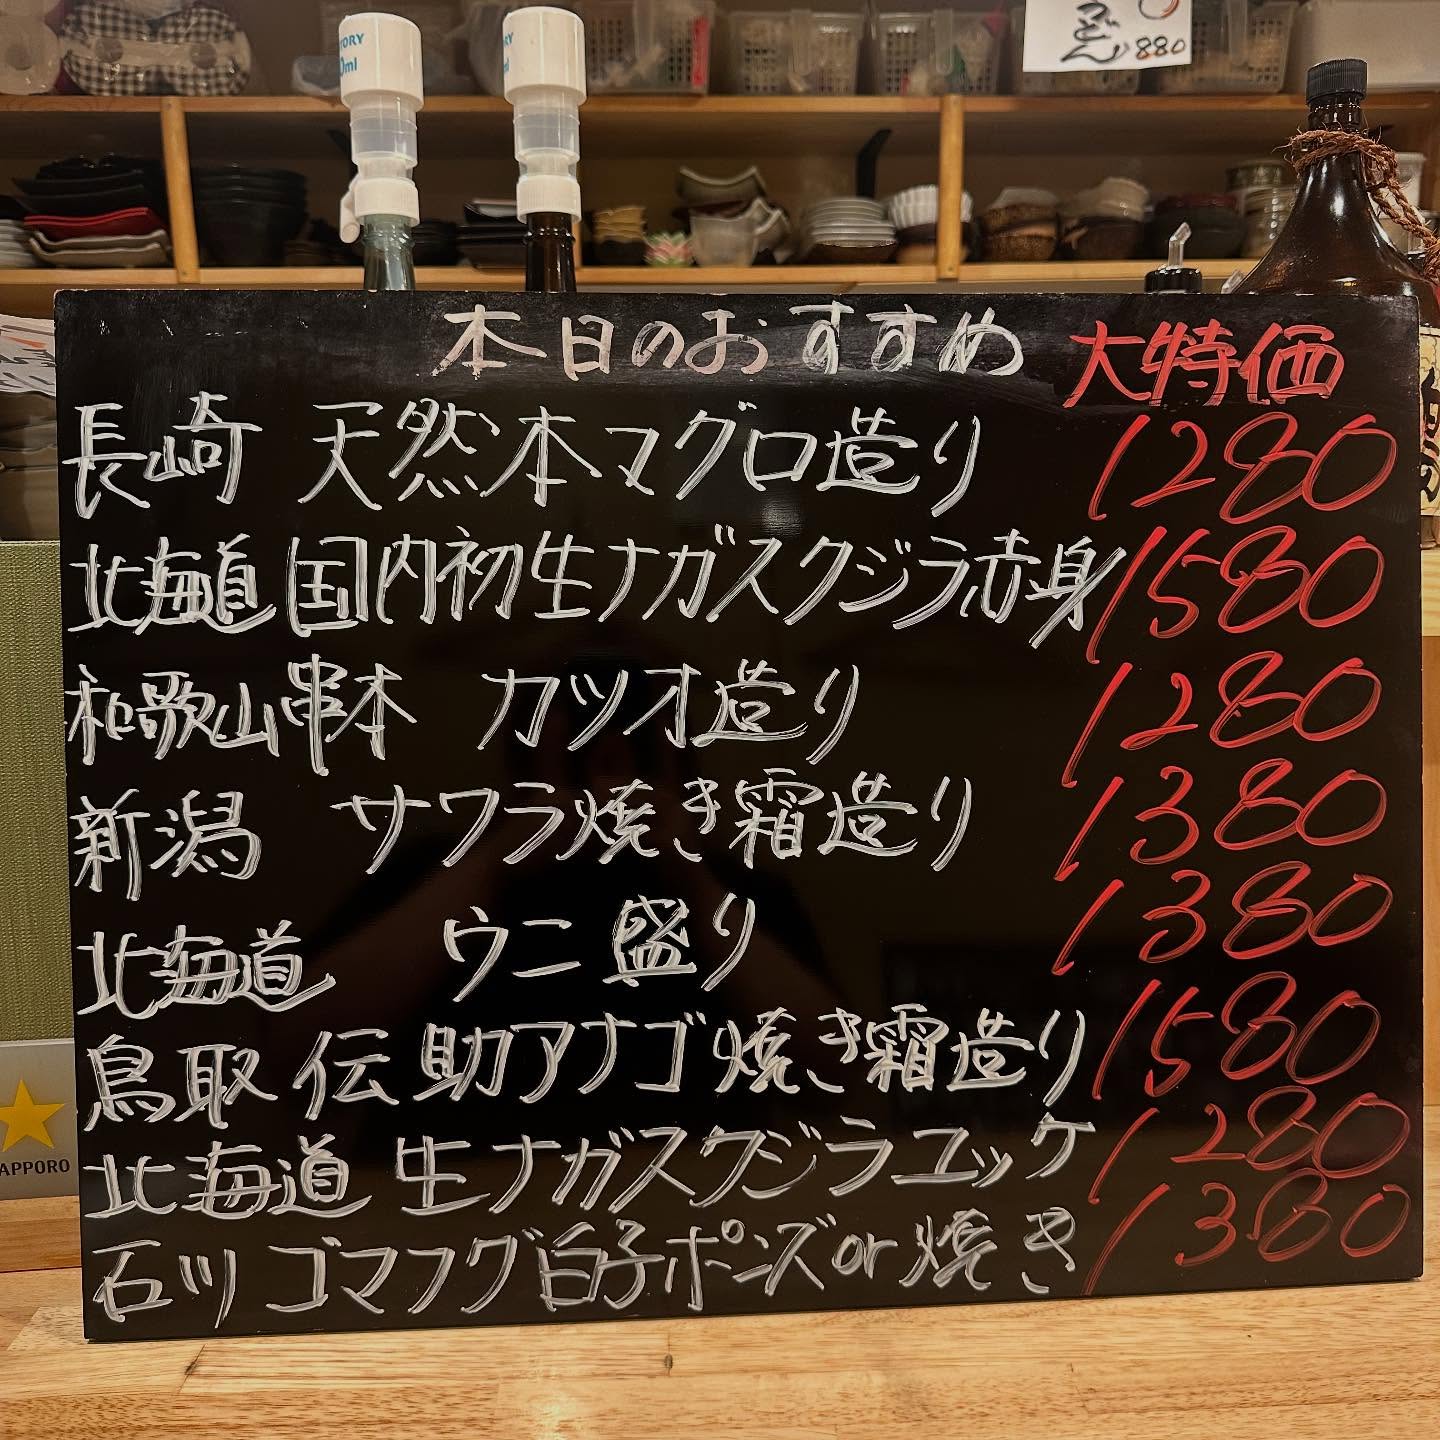 880
本日のおすすめ 大特価
長崎 天然本マグロ造り 1280
北海道 国内初生ナガスクジラ赤身 1580
和歌山串本 カツオ造り 1280
新潟 サワラ焼き霜造り 1380
北海道 ウニ盛り 1380
鳥取 伝助アナゴ焼き霜造り 1580
北海道 生ナガスクジラユッケ 1280
石川 ゴマフグ白子ポンズor焼き 1380
SAPPORO